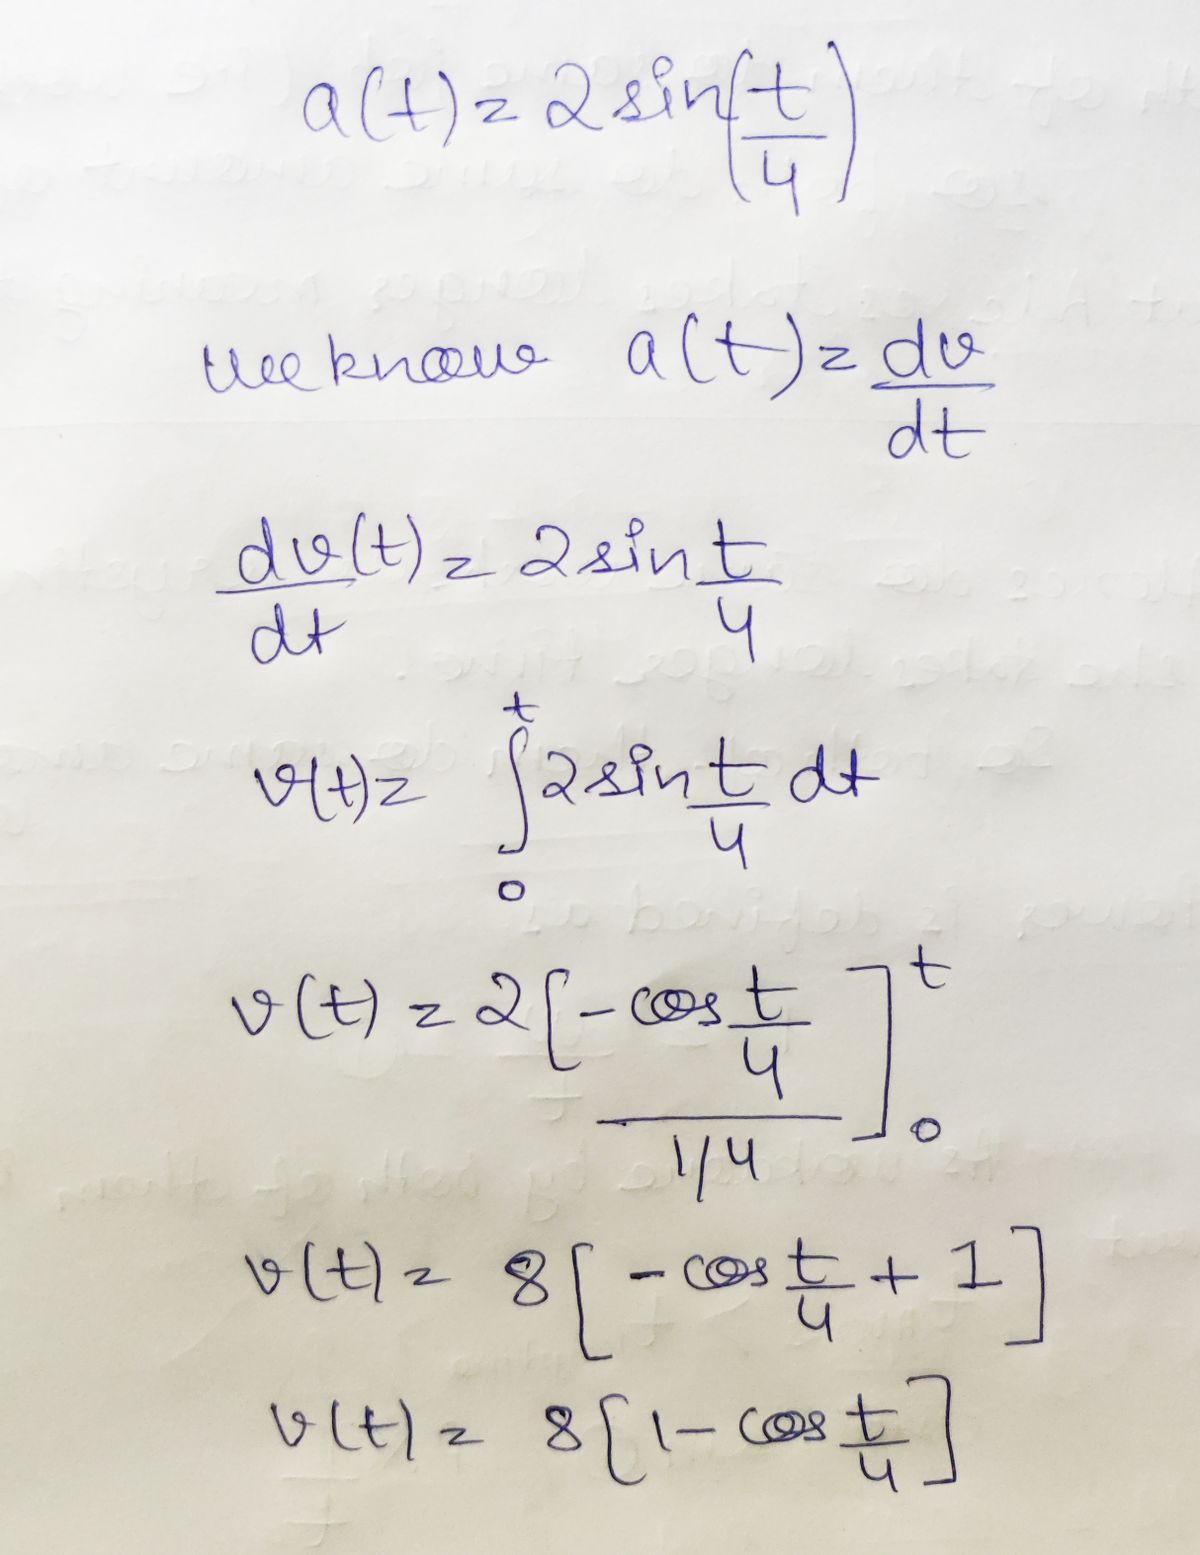 a(t) = 2 sin(t/4)
We know a(t) = dv/dt
dv(t)/dt = 2 sin t/4
v(t) = ∫₀ᵗ 2 sin t/4 dt
v(t) = 2[-cos t/4 / 1/4]₀ᵗ
v(t) = 8[-cos t/4 + 1]
v(t) = 8[1 - cos t/4]